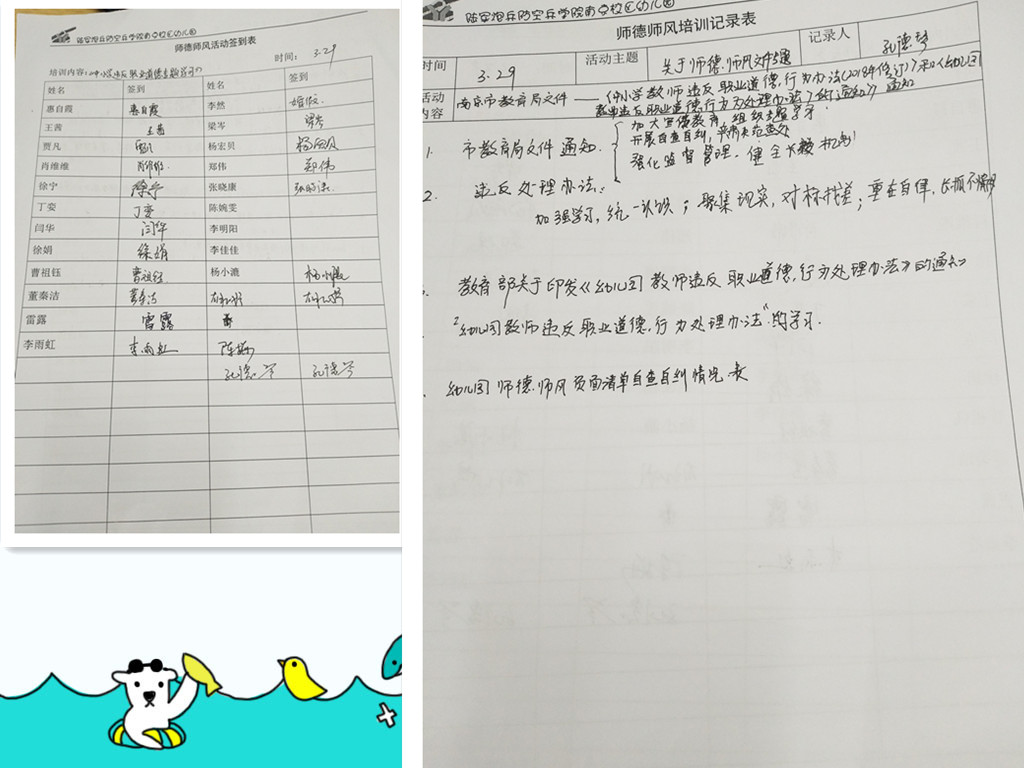 陆军炮兵防空兵学院南京校区幼儿园
师德师风活动签到表
时间： 3.29
培训内容：《中小学违反职业道德专题学习》
姓名 签到 姓名 签到
惠自霞 惠自霞 李然 婚假
王茜 王茜 梁岑 梁岑
贾凡 杨宏贝 杨宏贝
肖维维 肖维维 郑伟 郑伟
徐宁 徐宁 张晓康
丁娈 丁娈 陈婉雯
闫华 闫华 李明阳
徐娟 徐娟 李佳佳
曹祖钰 曹祖钰 杨小漉
董秦洁 董秦洁
雷露 雷露
李雨虹 李雨虹
陆军炮兵防空兵学院南京校区幼儿园
师德师风培训记录表
时间 3.29 活动主题 关于师德师风文件专题 记录人
活动内容 南京市教育局文件 —— 《中小学教师违反职业道德行为办法(2018年修订)》和《幼儿园
教师违反职业道德行为处理办法》的通知》 通知
1. 市教育局文件通知. 加大宣传教育，组织专题学习.
开展自查自纠，严肃失范查处
强化监督管理，健全长效机制
2. 违反处理办法：
加强学习，统一认识；聚集现实，对标找差；重在自律，长抓不懈
教育部关于印发《幼儿园教师违反职业道德行为处理办法》的通知
"幼儿园教师违反职业道德行为处理办法"的学习.
幼儿园师德师风负面清单自查自纠情况表